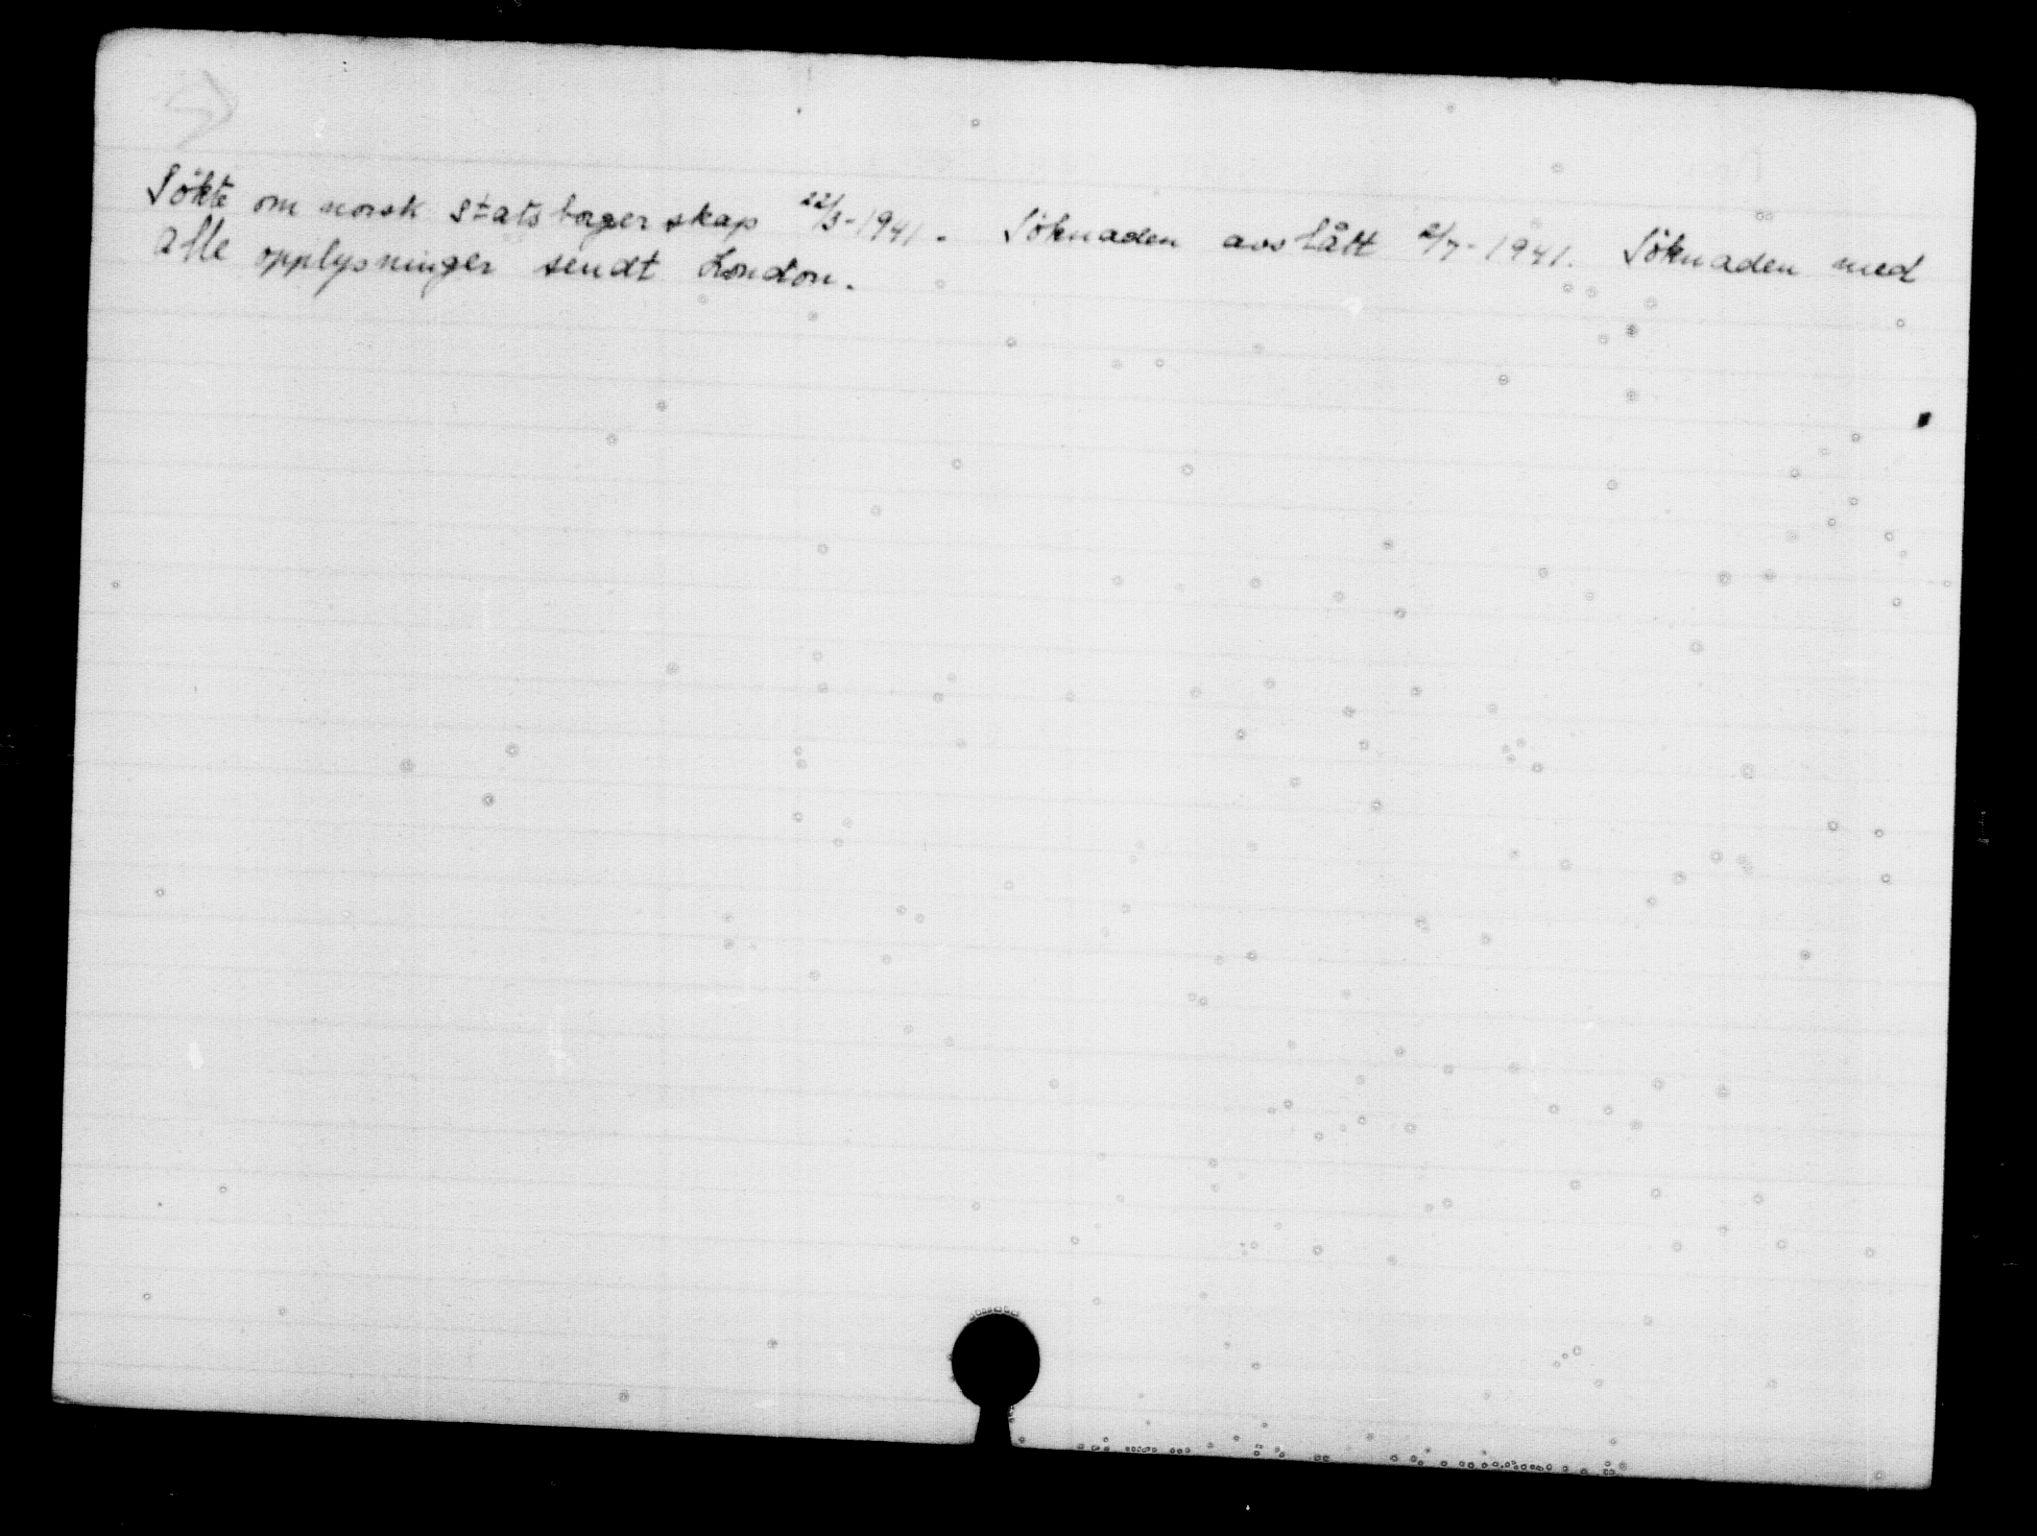 Sökte om norsk statsborgerskap 22/3-1941. Söknaden avslått 2/7-1941. Söknaden med
alle opplysninger sendt London.